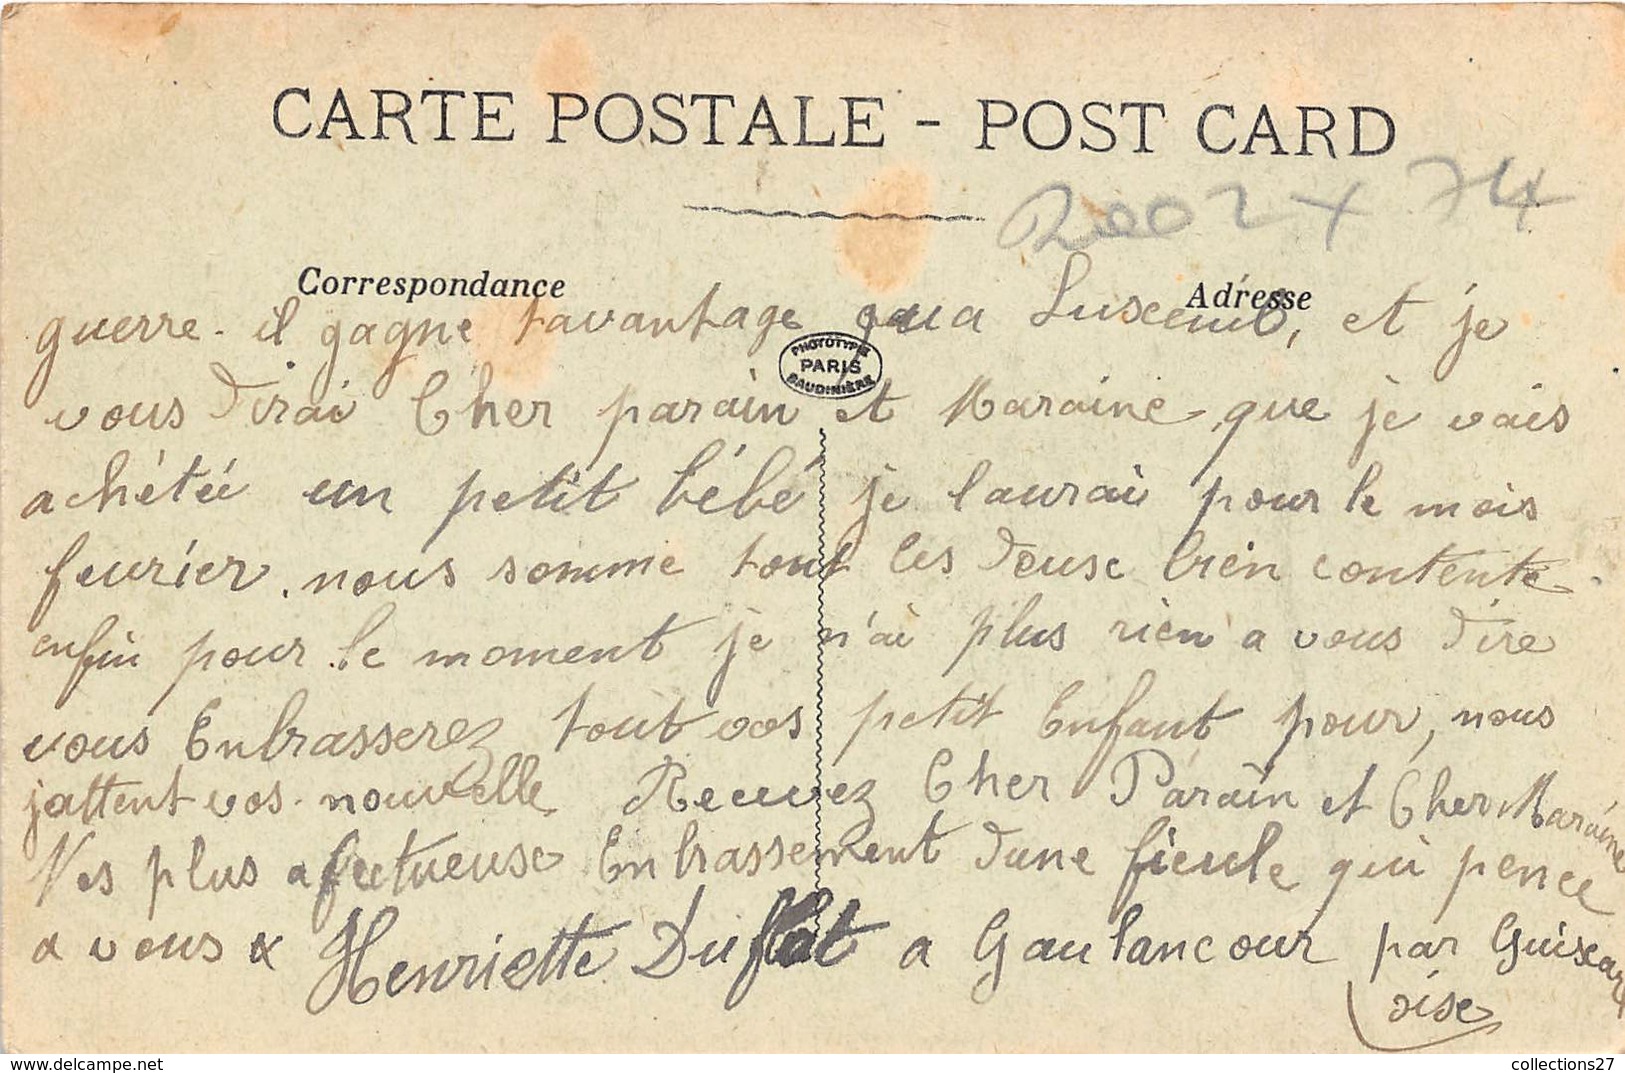 CARTE POSTALE - POST CARD
2002 x 74
Correspondance
Adresse
guerre. il gagne tavantage qua Luxeuil, et je
PHOTOTYPIE
PARIS
BAUDINIÈRE
vous dirai Cher parain et Maraine que je vais
achétée un petit bébé je laurai pour le mois
feurier. nous somme tout les deuse bien contente
enfin pour le moment je n'ai plus rien a vous dire
vous Enbrasserez tout vos petit Enfant pour, nous
jattent vos nouvelle Recevez Cher Parain et Cher Maraine
Nes plus afectueuse Enbrassement dune ficule qui pence
a vous x Henriette Duflot a Gaulancour par Guiscar
oise
collections27